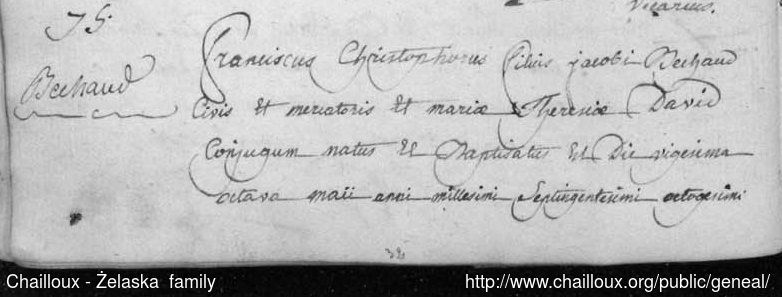 Vicarius.
75.
Bechaud
Franciscus Christophorus filius jacobi Bechaud
Civis Et mercatoris Et mariæ Theresiæ David
Conjugum natus Et Baptisatus Est Die vigesima
octava maii anni millesimi Septingentesimi octogesimi
32
Chailloux - Żelaska family
http://www.chailloux.org/public/geneal/